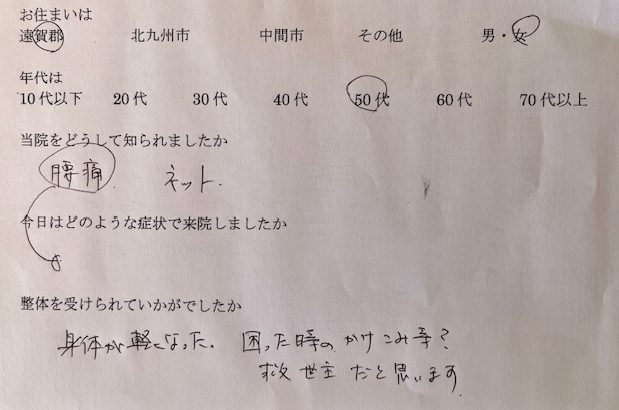 お住まいは
遠賀郡 北九州市 中間市 その他 男・女
年代は
10代以下 20代 30代 40代 50代 60代 70代以上
当院をどうして知られましたか
腰痛. ネット.
今日はどのような症状で来院しましたか
整体を受けられていかがでしたか
身体が軽くなった. 困った時の かけこみ寺?
救世主 だと思います.